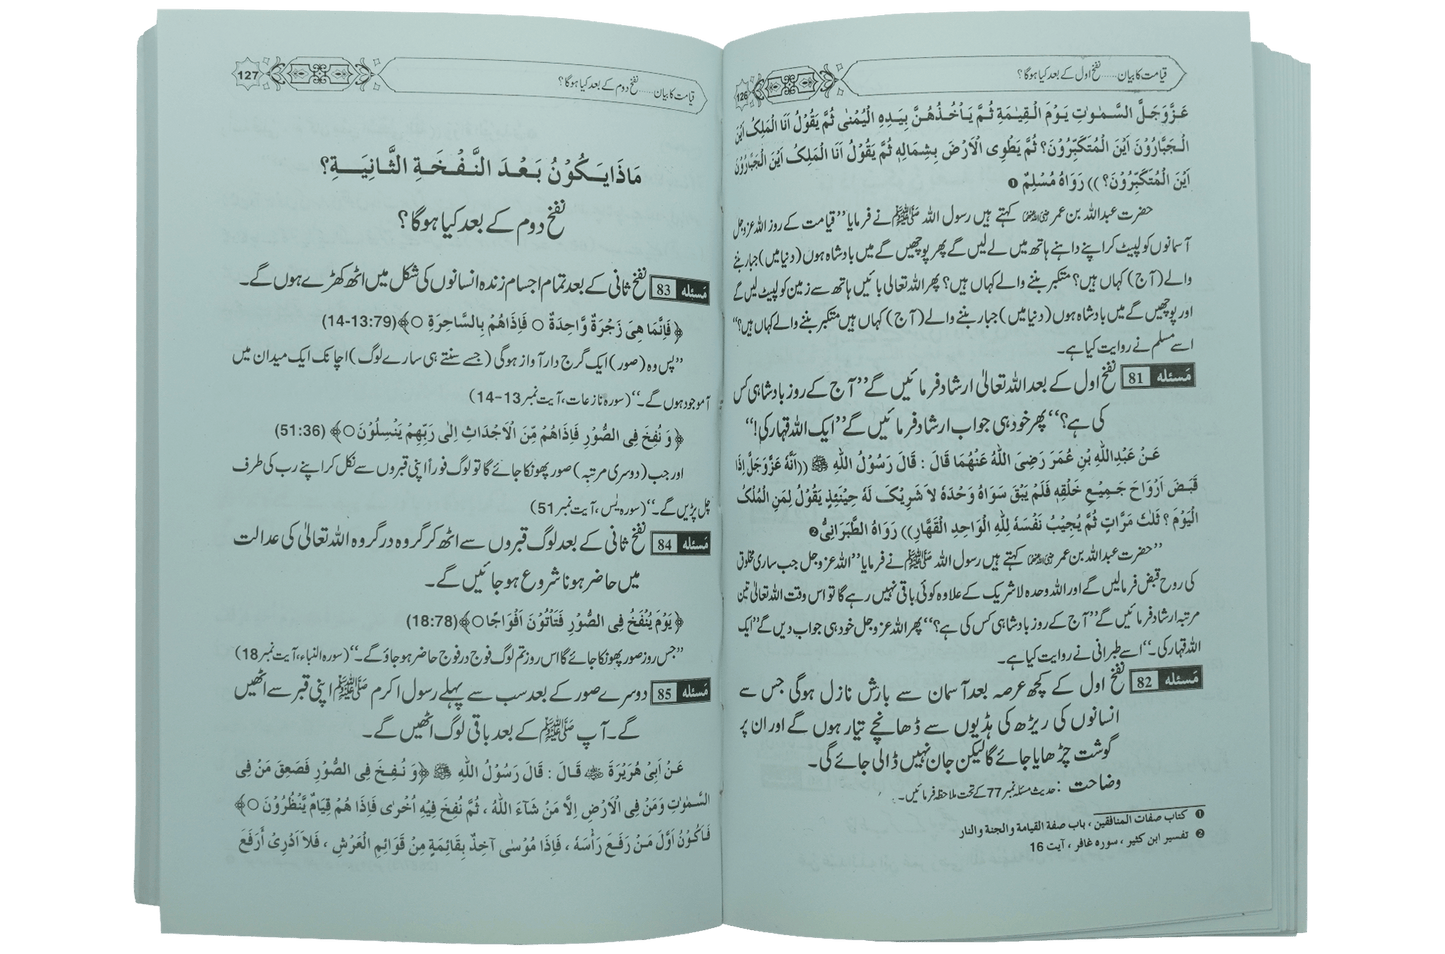 قیامت کا بیان......نفخ اول کے بعد کیا ہوگا؟
126
عَزَّوَجَلَّ السَّمٰوٰتِ یَوْمَ الْقِیٰمَةِ ثُمَّ یَأْخُذُهُنَّ بِیَدِهِ الْیُمْنٰی ثُمَّ یَقُوْلُ اَنَا الْمَلِکُ اَیْنَ
الْجَبَّارُوْنَ اَیْنَ الْمُتَکَبِّرُوْنَ؟ ثُمَّ یَطْوِی الْاَرْضَ بِشِمَالِهٖ ثُمَّ یَقُوْلُ اَنَا الْمَلِکُ اَیْنَ الْجَبَّارُوْنَ
اَیْنَ الْمُتَکَبِّرُوْنَ؟)) رَوَاهُ مُسْلِمٌ ❶
حضرت عبداللہ بن عمر رضی اللہ عنہما کہتے ہیں رسول اللہ ﷺ نے فرمایا ”قیامت کے روز اللہ عزوجل
آسمانوں کو لپیٹ کر اپنے داہنے ہاتھ میں لے لیں گے پھر پوچھیں گے میں بادشاہ ہوں (دنیا میں) جبار بننے
والے (آج) کہاں ہیں؟ متکبر بننے والے کہاں ہیں؟ پھر اللہ تعالیٰ بائیں ہاتھ سے زمین کو لپیٹ لیں گے
اور پوچھیں گے میں بادشاہ ہوں (دنیا میں) جبار بننے والے (آج) کہاں ہیں متکبر بننے والے کہاں ہیں؟“
اسے مسلم نے روایت کیا ہے۔
مَسئلہ 81 نفخ اول کے بعد اللہ تعالیٰ ارشاد فرمائیں گے ”آج کے روز بادشاہی کس
کی ہے؟“ پھر خود ہی جواب ارشاد فرمائیں گے ”ایک اللہ قہار کی!“
عَنْ عَبْدِاللّٰهِ بْنِ عُمَرَ رَضِیَ اللّٰهُ عَنْهُمَا قَالَ : قَالَ رَسُوْلُ اللّٰهِ ﷺ ((اَنَّهٗ عَزَّوَجَلَّ اِذَا
قَبَضَ اَرْوَاحَ جَمِیْعِ خَلْقِهٖ فَلَمْ یَبْقَ سَوَاهُ وَحْدَهٗ لاَ شَرِیْکَ لَهٗ حِیْنَئِذٍ یَقُوْلُ لِمَنِ الْمُلْکُ
الْیَوْمَ ؟ ثَلٰثَ مَرَّاتٍ ثُمَّ یُجِیْبُ نَفْسَهٗ لِلّٰهِ الْوَاحِدِ الْقَهَّارِ)) رَوَاهُ الطَّبَرَانِیُّ ❷
”حضرت عبداللہ بن عمر رضی اللہ عنہما کہتے ہیں رسول اللہ ﷺ نے فرمایا ”اللہ عزوجل جب ساری مخلوق
کی روح قبض فرمالیں گے اور اللہ وحدہ لاشریک کے علاوہ کوئی باقی نہیں رہے گا تو اس وقت اللہ تعالیٰ تین
مرتبہ ارشاد فرمائیں گے ”آج کے روز بادشاہی کس کی ہے؟“ پھر اللہ عزوجل خود ہی جواب دیں گے ”ایک
اللہ قہار کی۔“ اسے طبرانی نے روایت کیا ہے۔
مَسئلہ 82 نفخ اول کے کچھ عرصہ بعد آسمان سے بارش نازل ہوگی جس سے
انسانوں کی ریڑھ کی ہڈیوں سے ڈھانچے تیار ہوں گے اور ان پر
گوشت چڑھایا جائے گا لیکن جان نہیں ڈالی جائے گی۔
وضاحت : حدیث مسئلہ نمبر 77 کے تحت ملاحظہ فرمائیں۔
❶ کتاب صفات المنافقین ، باب صفة القیامة والجنة والنار
❷ تفسیر ابن کثیر ، سورہ غافر ، آیت 16
قیامت کا بیان......نفخ دوم کے بعد کیا ہوگا؟
127
مَاذَا یَکُوْنُ بَعْدَ النَّفْخَةِ الثَّانِیَةِ؟
نفخ دوم کے بعد کیا ہوگا؟
مَسئلہ 83 نفخ ثانی کے بعد تمام اجسام زندہ انسانوں کی شکل میں اٹھ کھڑے ہوں گے۔
﴿ فَاِنَّمَا هِیَ زَجْرَةٌ وَّاحِدَةٌ ○ فَاِذَاهُمْ بِالسَّاحِرَةِ ○﴾(79:13-14)
”پس وہ (صور) ایک گرج دار آواز ہوگی (جسے سنتے ہی سارے لوگ) اچانک ایک میدان میں
آموجود ہوں گے۔“ (سورہ نازعات، آیت نمبر 13-14)
﴿ وَ نُفِخَ فِی الصُّوْرِ فَاِذَاهُمْ مِّنَ الْاَجْدَاثِ اِلٰی رَبِّهِمْ یَنْسِلُوْنَ ○﴾ (51:36)
اور جب (دوسری مرتبہ) صور پھونکا جائے گا تو لوگ فوراً اپنی قبروں سے نکل کر اپنے رب کی طرف
چل پڑیں گے۔“ (سورہ یٰس، آیت نمبر 51)
مَسئلہ 84 نفخ ثانی کے بعد لوگ قبروں سے اٹھ کر گروہ در گروہ اللہ تعالیٰ کی عدالت
میں حاضر ہونا شروع ہو جائیں گے۔
﴿ یَوْمَ یُنْفَخُ فِی الصُّوْرِ فَتَاْتُوْنَ اَفْوَاجًا ○﴾(18:78)
”جس روز صور پھونکا جائے گا اس روز تم لوگ فوج در فوج حاضر ہو جاؤ گے۔“ (سورہ النباء، آیت نمبر 18)
مَسئلہ 85 دوسرے صور کے بعد سب سے پہلے رسول اکرم ﷺ اپنی قبر سے اٹھیں
گے۔ آپ ﷺ کے بعد باقی لوگ اٹھیں گے۔
عَنْ اَبِیْ هُرَیْرَةَ ؓ قَالَ : قَالَ رَسُوْلُ اللّٰهِ ﷺ ﴿وَ نُفِخَ فِی الصُّوْرِ فَصَعِقَ مَنْ فِی
السَّمٰوٰتِ وَمَنْ فِی الْاَرْضِ اِلاَّ مَنْ شَآءَ اللّٰهُ ، ثُمَّ نُفِخَ فِیْهِ اُخْرٰی فَاِذَا هُمْ قِیَامٌ یَّنْظُرُوْنَ ○﴾
فَاَکُوْنُ اَوَّلَ مَنْ رَفَعَ رَأْسَهٗ ، فَاِذَا مُوْسٰی آخِذٌ بِقَائِمَةٍ مِنْ قَوَائِمِ الْعَرْشِ ، فَلاَ اَدْرِیْ أَرَفَعَ